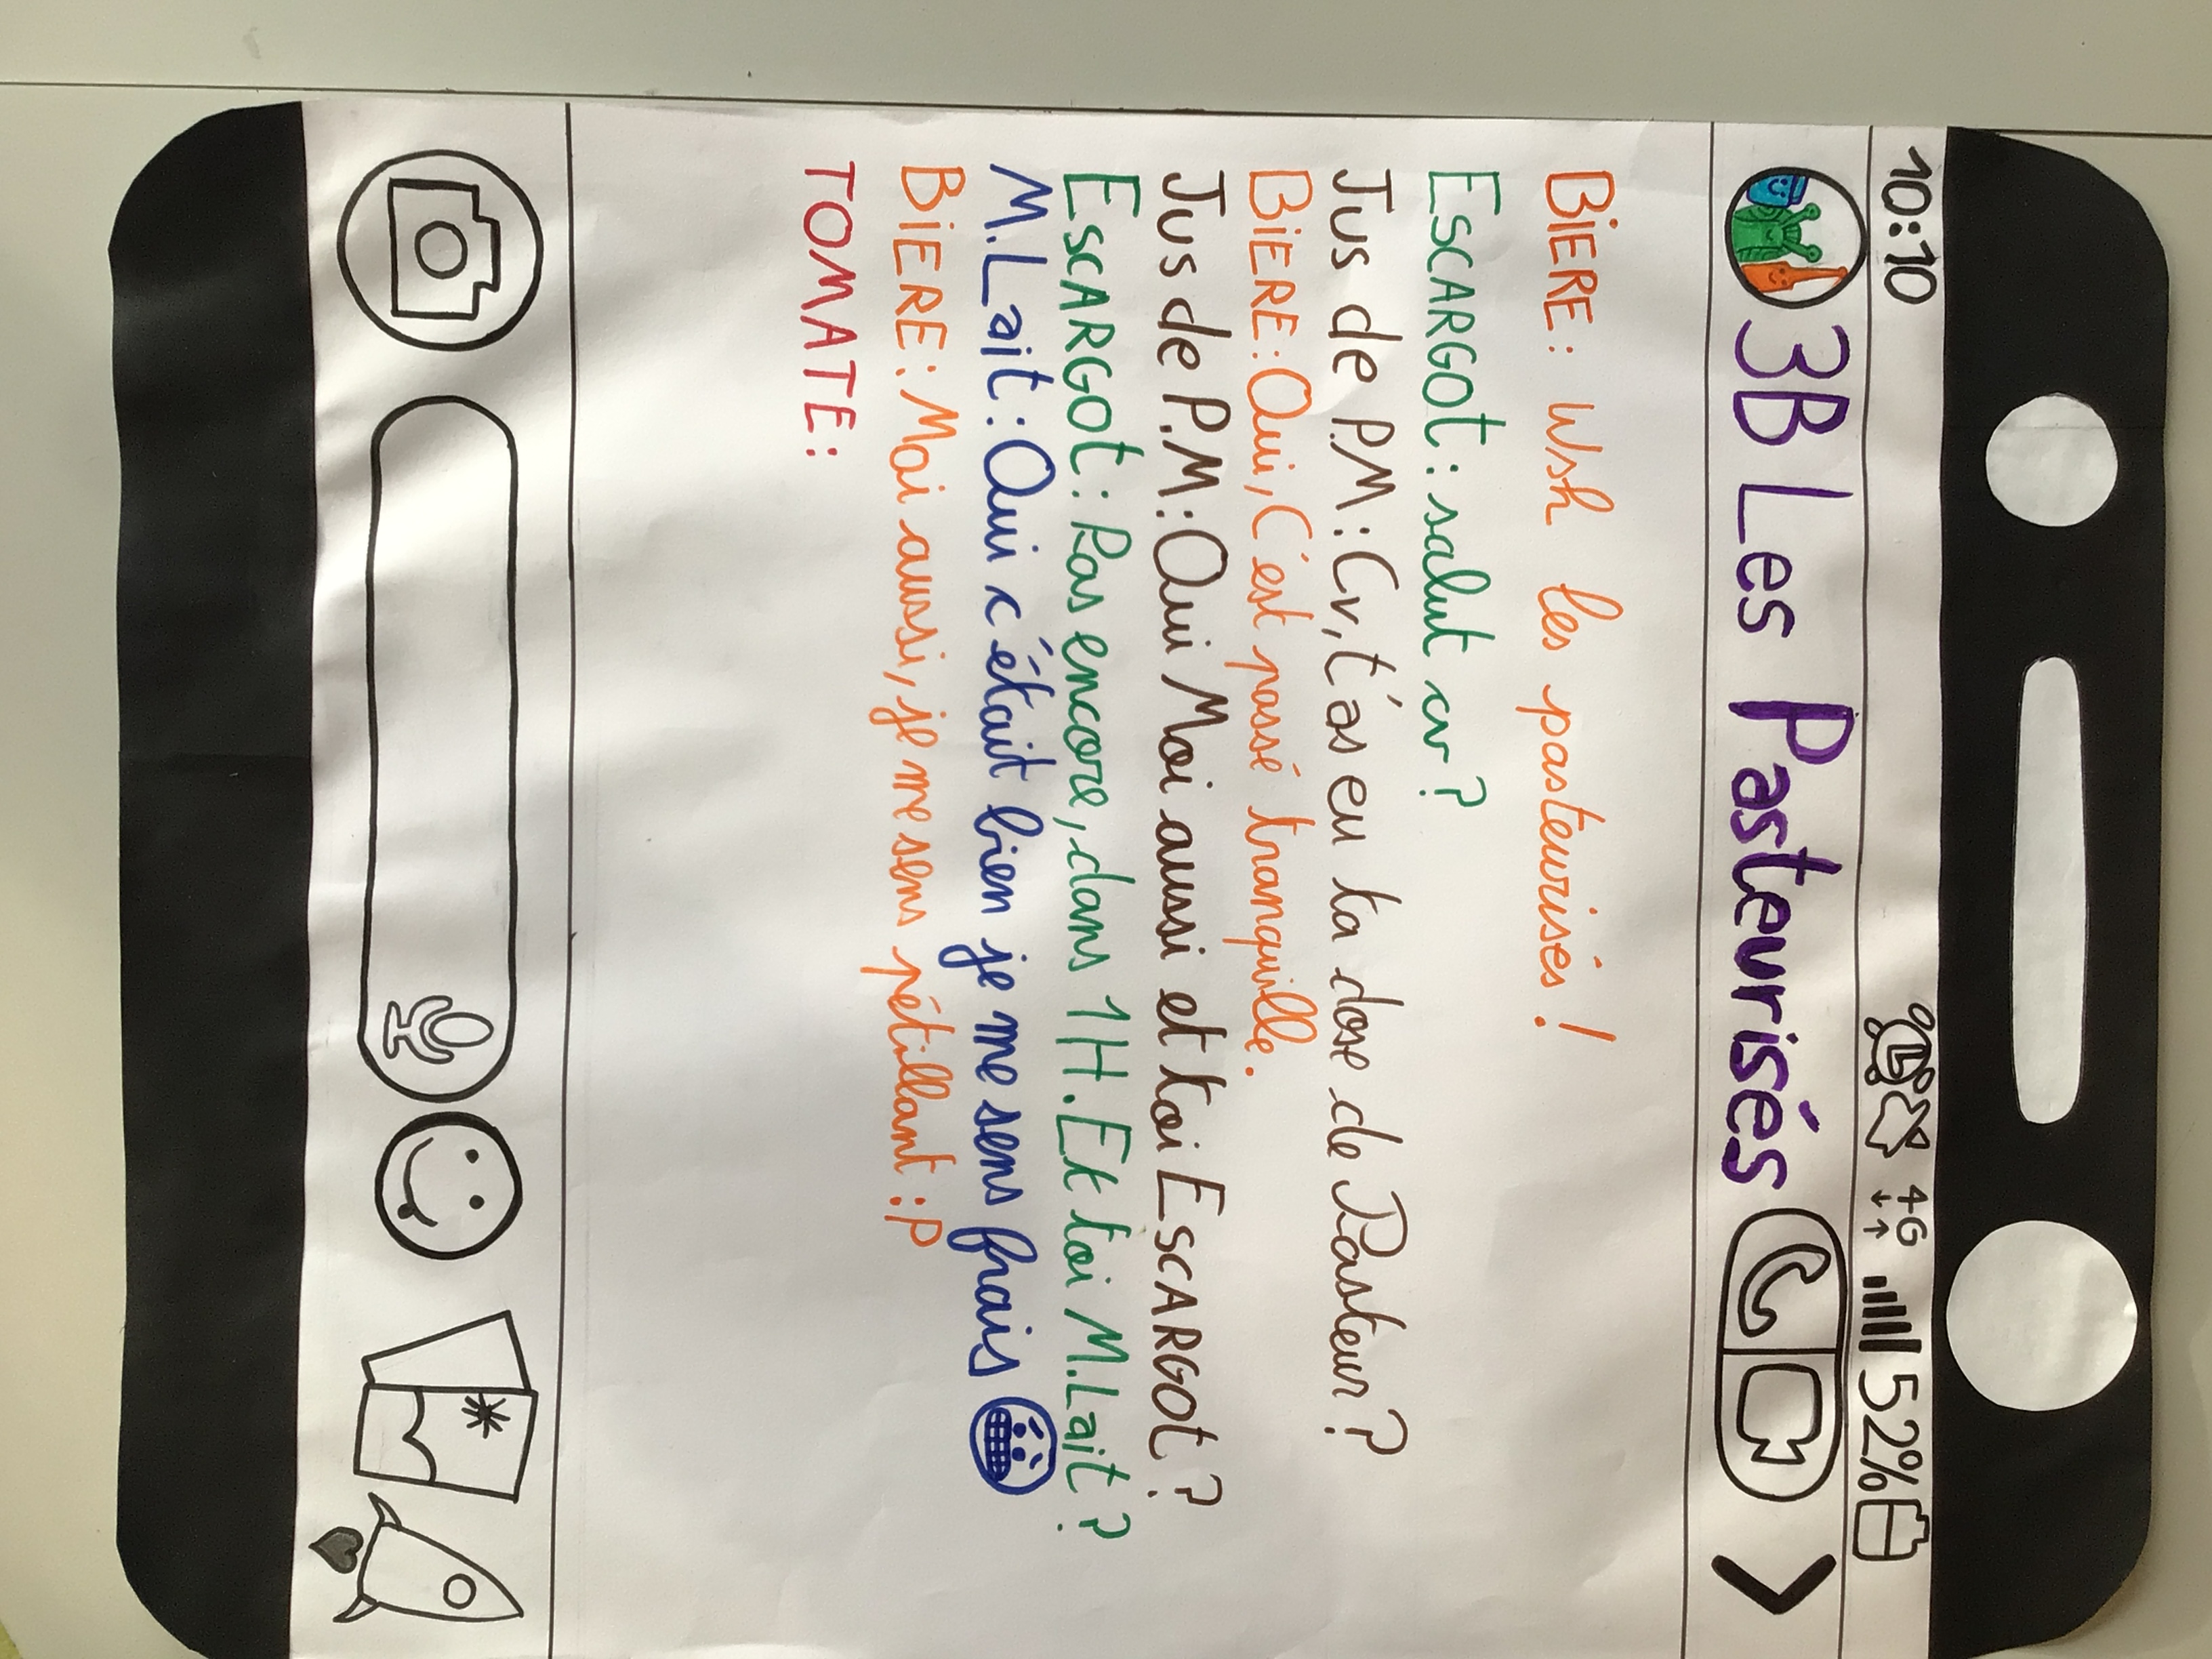 10:10 4G 52%
3B Les Pasteurisés
BiERE: Wsh les pasteurisés!
ESCARGOt: salut cv?
Jus de P.M: Cv, t'as eu ta dose de Pasteur?
BiERE: Oui, C'est passé tranquille.
Jus de P.M: Oui Moi aussi et toi ESCARGOt?
ESCARGOt: Pas encore, dans 1H. Et toi M.Lait?
M.Lait: Oui c'était bien je me sens frais
BiERE: Moi aussi, je me sens pétillant :P
TOMATE: